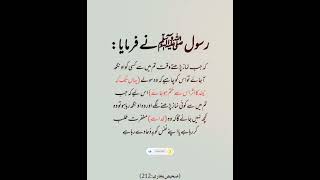 رسول ﷺ نے فرمایا :
کہ جب نماز پڑھتے وقت تم میں سے کسی کو اونگھ
آجائے تو اس کو چاہیے کہ وہ سولے (یہاں تک کہ
نیند کا اثر اس سے ختم ہو جائے) اس لیے کہ جب
تم میں سے کوئی نماز پڑھنے لگے اور وہ اونگھ رہا ہو تو وہ
کچھ نہیں جانے گا کہ وہ (خدا سے) مغفرت طلب
کر رہا ہے یا اپنے نفس کو بددعا دے رہا ہے
(صحیح بخاری:212)